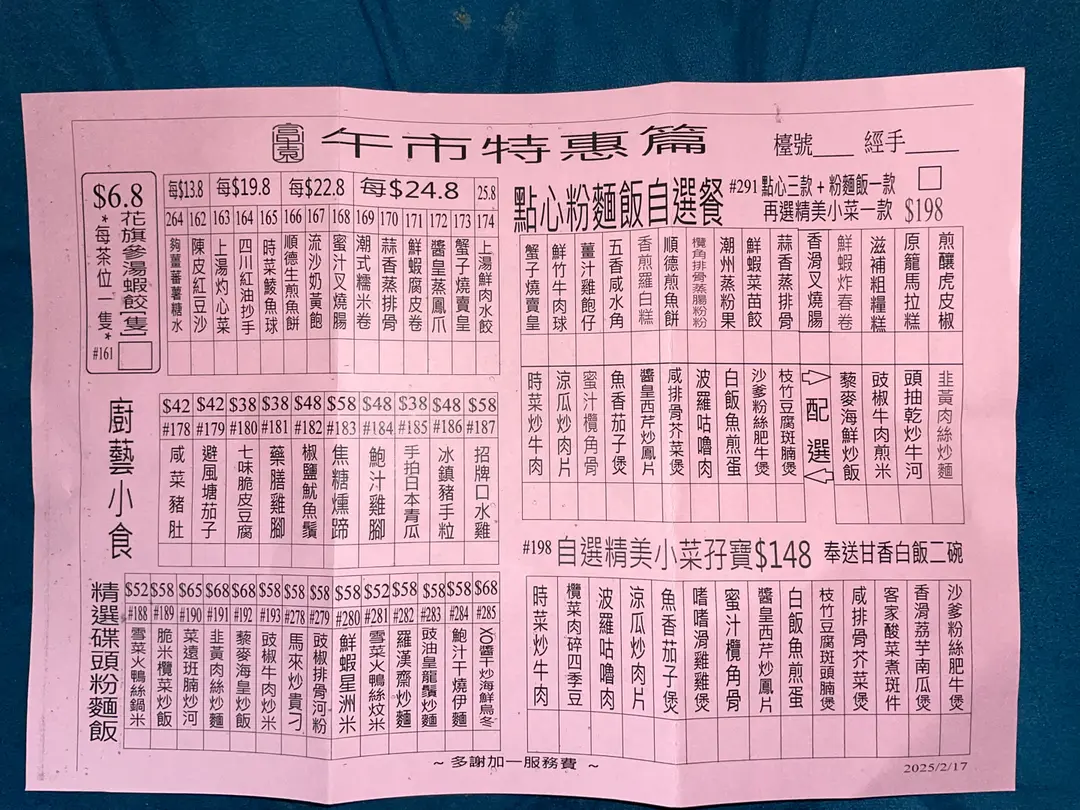 富臨 午市特惠篇
檯號____ 經手____
$6.8
花旗參湯蝦餃[隻]
*每茶位一隻*
#161
每$13.8 每$19.8 每$22.8 每$24.8 25.8
264 162 163 164 165 166 167 168 169 170 171 172 173 174
夠薑蕃薯糖水
陳皮紅豆沙
上湯灼心菜
四川紅油抄手
時菜鯪魚球
順德生煎魚餅
流沙奶黃飽
蜜汁叉燒腸
潮式糯米卷
蒜香蒸排骨
鮮蝦腐皮卷
醬皇蒸鳳爪
蟹子燒賣皇
上湯鮮肉水餃
廚藝小食
$42 $42 $38 $38 $48 $58 $48 $38 $48 $58
#178 #179 #180 #181 #182 #183 #184 #185 #186 #187
咸菜豬肚
避風塘茄子
七味脆皮豆腐
藥膳雞腳
椒鹽魷魚鬚
焦糖燻蹄
鮑汁雞腳
手拍日本青瓜
冰鎮豬手粒
招牌口水雞
精選碟頭粉麵飯
$52 $58 $65 $68 $68 $58 $58 $58 $58 $52 $58 $58 $58 $68
#188 #189 #190 #191 #192 #193 #278 #279 #280 #281 #282 #283 #284 #285
雪菜火鴨絲鍋米
脆米欖菜炒飯
菜遠班腩炒河
韭黃肉絲炒麵
藜麥海皇炒飯
豉椒牛肉炒米
馬來炒貴刁
豉椒排骨河粉
鮮蝦星洲米
雪菜火鴨絲炆米
羅漢齋炒麵
豉油皇龍鬚炒麵
鮑汁干燒伊麵
XO醬干炒海鮮烏冬
點心粉麵飯自選餐
#291 點心三款+粉麵飯一款
再選精美小菜一款 $198
蟹子燒賣皇
鮮竹牛肉球
薑汁雞飽仔
五香咸水角
香煎羅白糕
順德煎魚餅
欖角排骨蒸腸粉
潮州蒸粉果
鮮蝦菜苗餃
蒜香蒸排骨
香滑叉燒腸
鮮蝦炸春卷
滋補粗糧糕
原籠馬拉糕
煎釀虎皮椒
時菜炒牛肉
涼瓜炒肉片
蜜汁欖角骨
魚香茄子煲
醬皇西芹炒鳳片
咸排骨芥菜煲
波羅咕嚕肉
白飯魚煎蛋
沙爹粉絲肥牛煲
枝竹豆腐斑腩煲
配選
藜麥海鮮炒飯
豉椒牛肉煎米
頭抽乾炒牛河
韭黃肉絲炒麵
#198 自選精美小菜孖寶$148 奉送甘香白飯二碗
時菜炒牛肉
欖菜肉碎四季豆
波羅咕嚕肉
涼瓜炒肉片
魚香茄子煲
嗜嗜滑雞雞煲
蜜汁欖角骨
醬皇西芹炒鳳片
白飯魚煎蛋
枝竹豆腐斑頭腩煲
咸排骨芥菜煲
客家酸菜煮斑件
香滑荔芋南瓜煲
沙爹粉絲肥牛煲
~ 多謝加一服務費 ~
2025/2/17